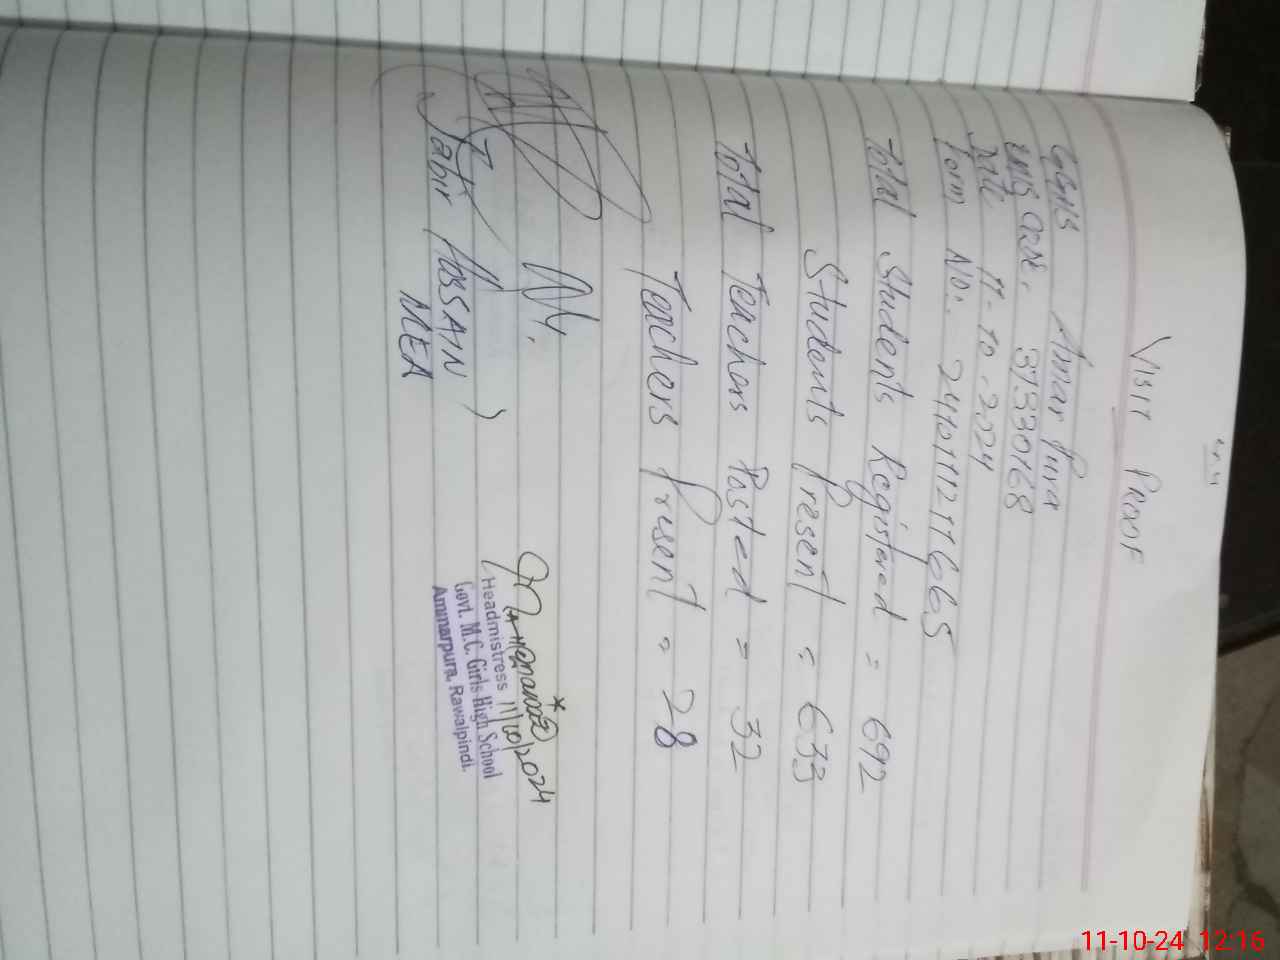 VISIT PROOF
GGHS Amar Pura
EMIS Code. 37330168
Date 11-10-2024
Form No: 241011121711665
Total Students Registered = 692
Students Present = 633
Total Teachers Posted = 32
Teachers Present = 28
Sabir HOSSAIN )
MEA
11/10/2024
Headmistress
Govt. M.C. Girls High School
Ammarpura, Rawalpindi.
11-10-24 12:16